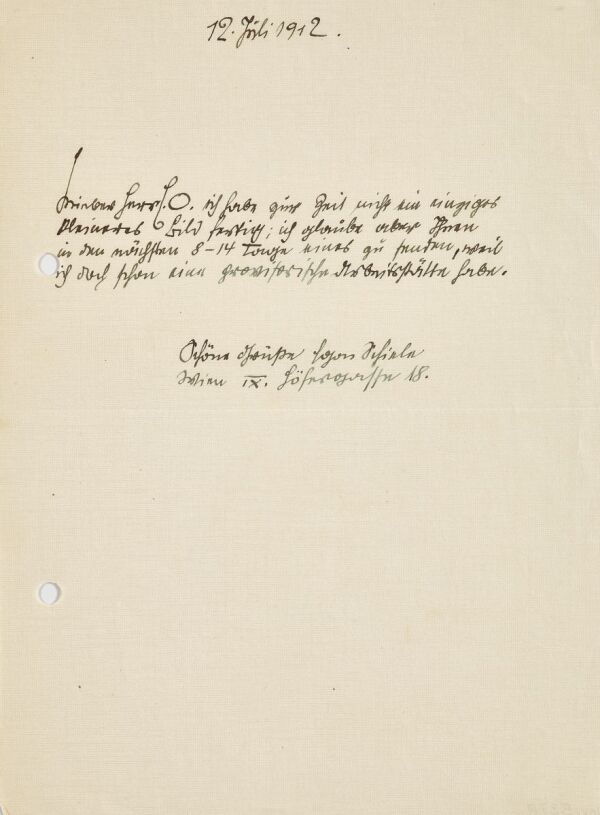 12. Juli 1912.
Lieber Herr H. O. ich habe zur Zeit nicht ein einziges
kleineres Bild fertig; ich glaube aber Ihnen
in den nächsten 8–14 Tage eines zu senden, weil
ich doch schon eine provisorische Arbeitsstätte habe.
Schöne Grüße Egon Schiele
Wien IX. Höfergasse 18.